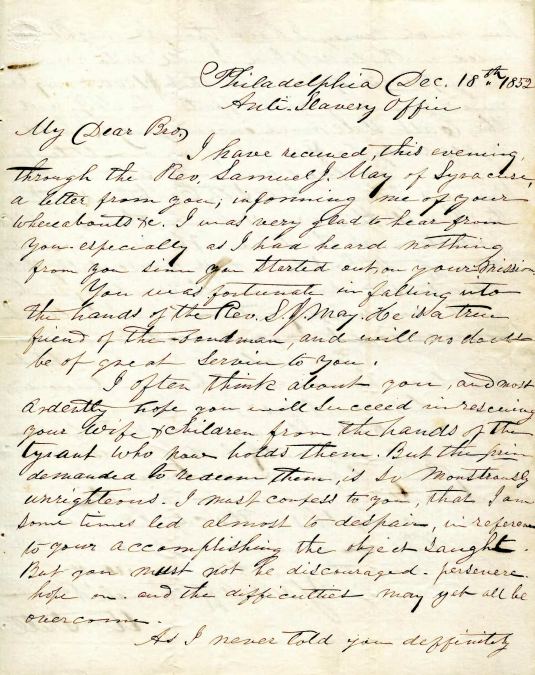 Philadelphia Dec. 18th 1852
Anti-Slavery Office
My Dear Bro,
I have received, this evening,
through the Rev. Samuel J. May of Syracuse,
a letter from you, informing me of your
whereabouts &c. I was very glad to hear from
you especially as I had heard nothing
from you since you started out, on your Mission
You was fortunate in falling into
the hands of the Rev. S. J. May. He is a true
friend of the bondman, and will no doubt
be of great service to you.
I often think about you, and most
ardently hope you will succeed in rescuing
your wife & children from the hands of the
tyrant who now holds them. But the price
demanded to redeem them, is so monstrously
unrighteous. I must confess to you, that I am
some times led almost to despair, in reference
to your accomplishing the object saught.
But you must not be discouraged - persevere -
hope on - and the difficulties may yet all be
overcome.
As I never told you deffinitely